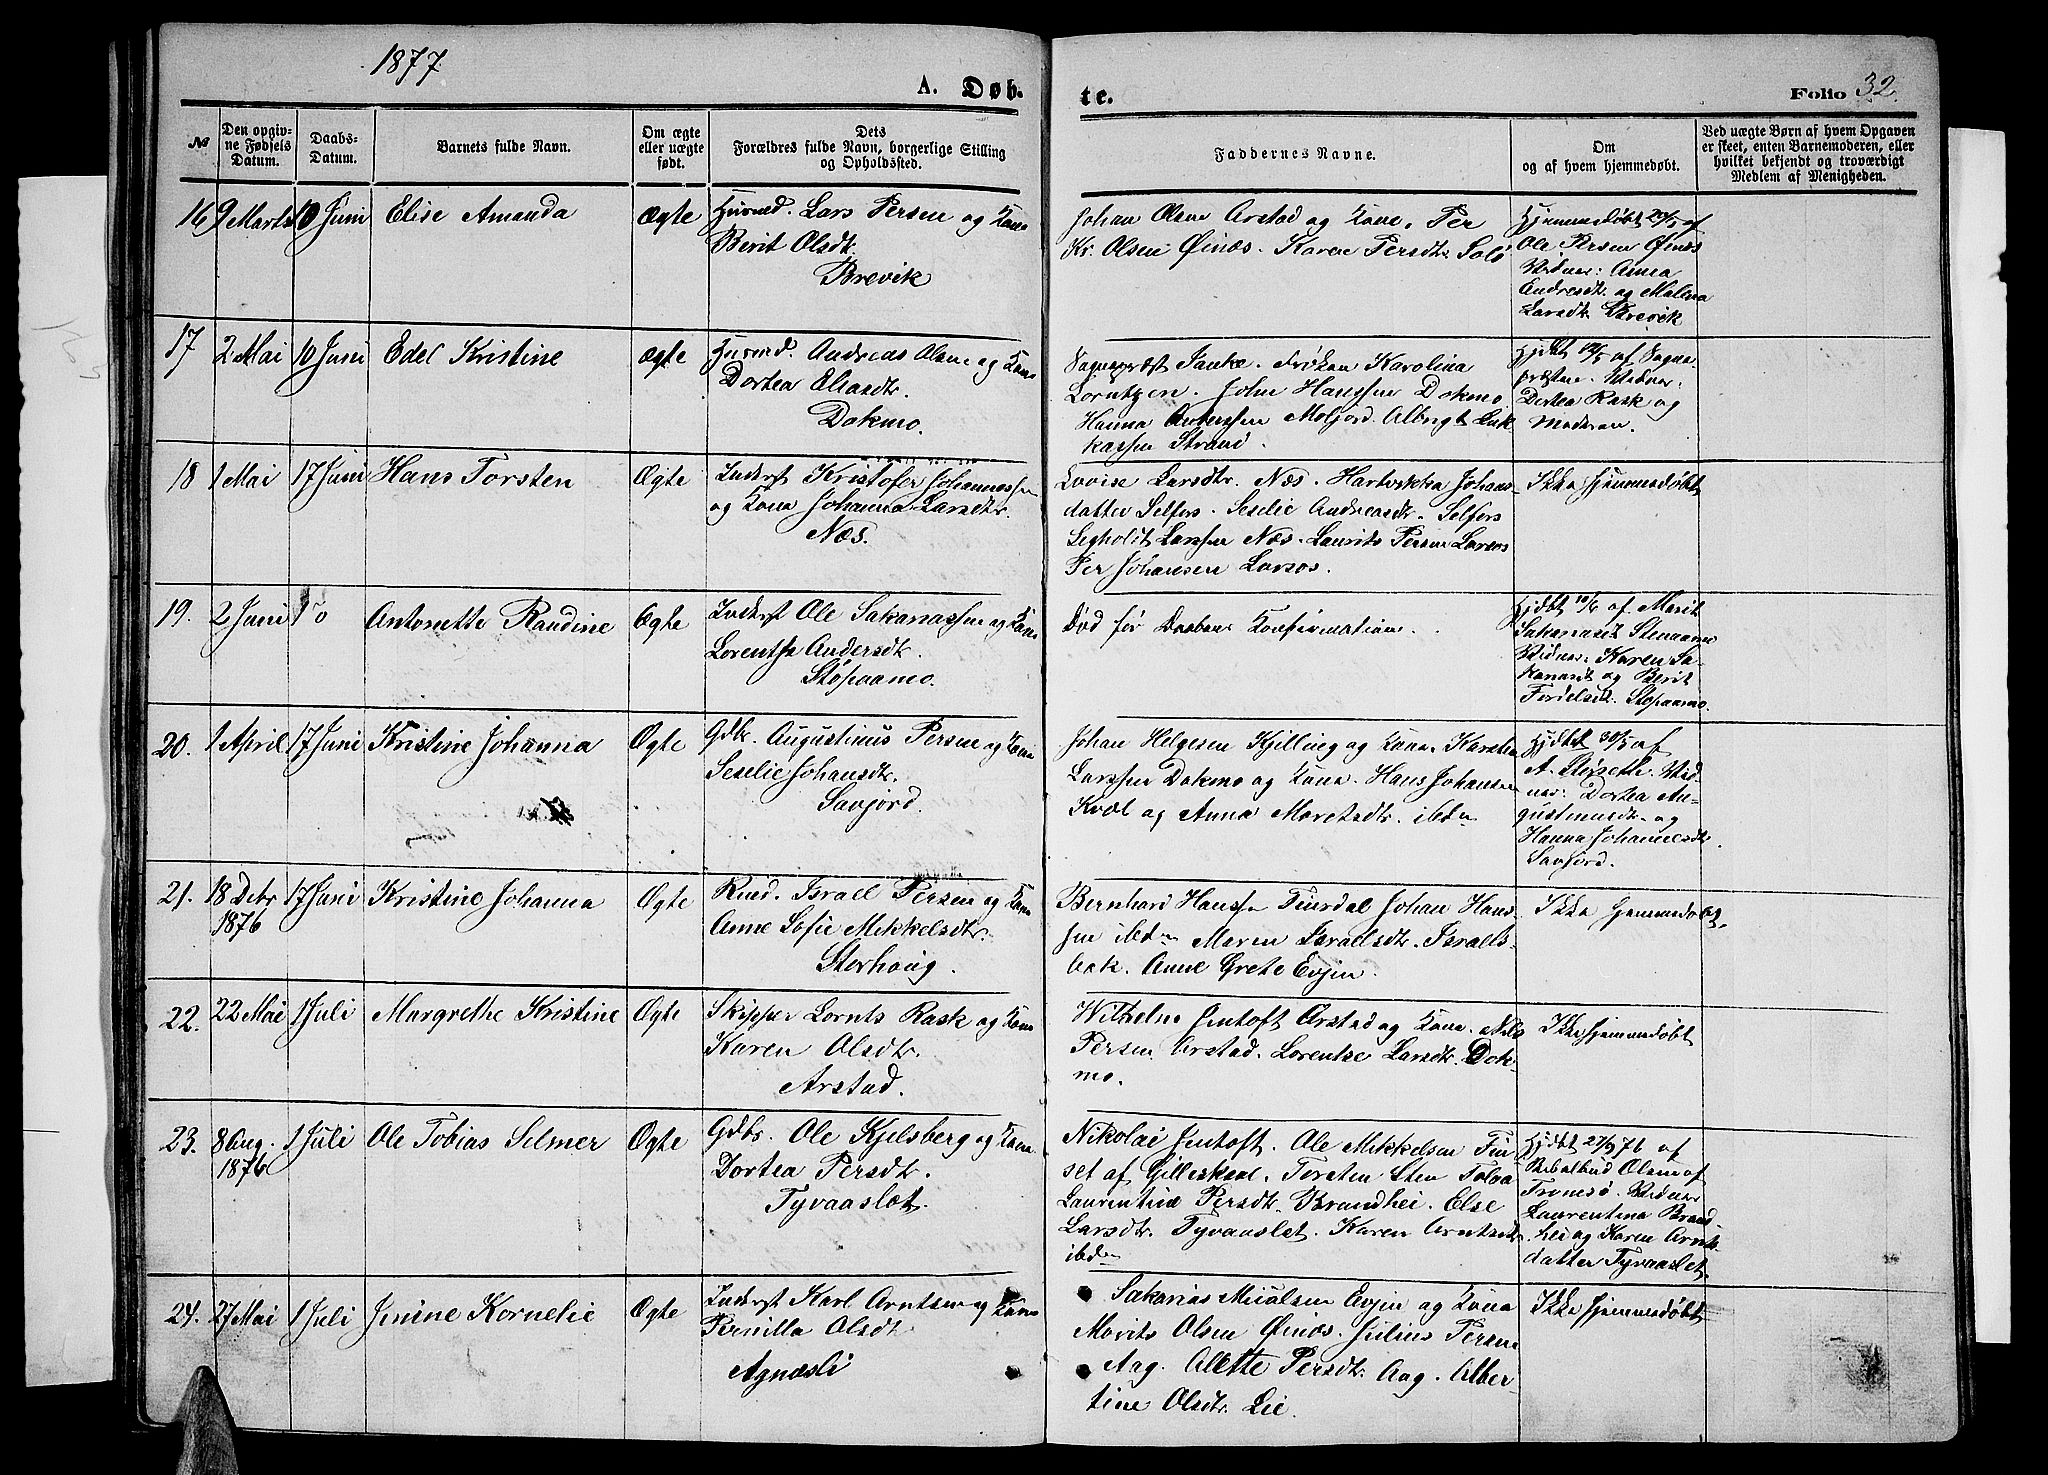 1877.
A. Døb-
te.
Folio 32.
№
Den opgiv-
ne Fødsels
Datum.
Daabs-
Datum.
Barnets fulde Navn.
Om ægte
eller uægte
født.
Dets
Forældres fulde Navn, borgerlige Stilling
og Opholdssted.
Faddernes Navne.
Om
og af hvem hjemmedøbt.
Ved uægte Børn af hvem Opgaven
er skeet, enten Barnemoderen, eller
hvilket bekjendt og troværdigt
Medlem af Menigheden.
16 9 Marts 10 Juni Elise Amanda Ægte Husmd. Lars Persen og Kone
Berit Olsdtr.
Brevik
Johan Olsen Arstad og Kone. Per
Kr. Olsen Øines. Karen Persdtr. Solø
Hjemmedøbt 20/5 af
Ole Persen Øines
Vidner: Anna
Andresdtr. og Malena
Larsdtr. Brevik
17 2 Mai 10 Juni Edel Kristine Ægte Husmd. Andreas Olsen og Kone
Dortea Eliasdtr.
Dokmo.
Sognepræst Janke. Frøken Karolina
Lorntzen. John Hanssen Dokmo
Hanna Anderssen Moljord. Albrigt Luk-
kassen Strand.
Hjdbt af Sogne-
præsten. Vidner:
Dortea Rask og
Moderen.
18 1 Mai 17 Juni Hans Torsten Ægte Inderst Kristofer Johannessen
og Kone Johanna Larsdtr.
Næs.
Lovise Larsdtr. Næs. Hartvikka Johans-
datter Selfors. Seselie Andreasdtr. Selfors
Segholdt Larssen Næs. Laurits Persen Larsos
Per Johansen Larsos.
Ikke hjemmedøbt
19. 2 Juni Antonette Raudine Ægte Inderst Ole Sakariassen og Kone
Lorentse Andersdtr.
Støpaamo.
Død før Daabens Konfirmation.
Hjdbt 10/6 af Marit
Sakariasdt
Vidner. Karen Sa-
kariasdt og Berit
Støpaamo.
20. 1 April 17 Juni Kristine Johanna Ægte Gdbr. Augustinus Persen og Kone
Seselie Johansdtr.
Savjord.
Johan Helgesen Kjelling og Kone. Karsten
Larssen Dokmo og Kone. Hans Johansen
Kvæl og Anna Moretsdtr. ibdn
Hjdbt 30/5 af
A. Støpseth. Vid-
ner: Dortea Au-
gustinusdtr. og
Hanna Johannesdtr.
Savjord.
21. 18 Debr 17 Juni Kristine Johanna Ægte Rind. Israel Persen og Kone
1876
Anne Sofie Mikkelsdtr.
Storhaug.
Bernhard Hanssen Finsdal Johan Hans-
sen ibdn Maren Israelsdtr. Israels-
bak. Anne Grete Evjen.
Ikke hjemmedøbt.
22. 22 Mai 1 Juli Margrethe Kristine Ægte Skipper Lornts Rask og Kone
Karen Olsdtr.
Arstad.
Wilhelm Jentoft Arstad og Kone. Nils
Persen Arstad. Lorentse Larsdtr. Dok-
mo.
Ikke hjemmedøbt
23. 8 Aug. 1 Juli Ole Tobias Selmer Ægte Gdbr. Ole Kjelsberg og Kone
1876
Dortea Persdtr.
Tyvaaslet.
Nikolai Jentoft. Ole Mikkelsen Fin-
set af Gilleskaal. Torsten Sten Tolva
Laurentine Persdtr. Brandhei. Else
Larsdtr. Tyvaaslet. Karen Arntsdtr.
ibdn
Hjdbt 27/9 76 af
Bibelbud Olsen af
Tromsø. Vidner
Laurentina Brand-
hei og Karen Arnts-
datter Tyvaaslet.
24. 27 Mai 1 Juli Jenine Kornelie Ægte Inderst Karl Arntsen og Kone
Pernilla Olsdtr.
Agnæsli
Sakarias Evjen og Kone
Morits Olsen Øines. Julius Persen
Aag. Alette Persdtr. Aag. Alber-
tine Olsdtr. Lie.
Ikke hjemmedøbt